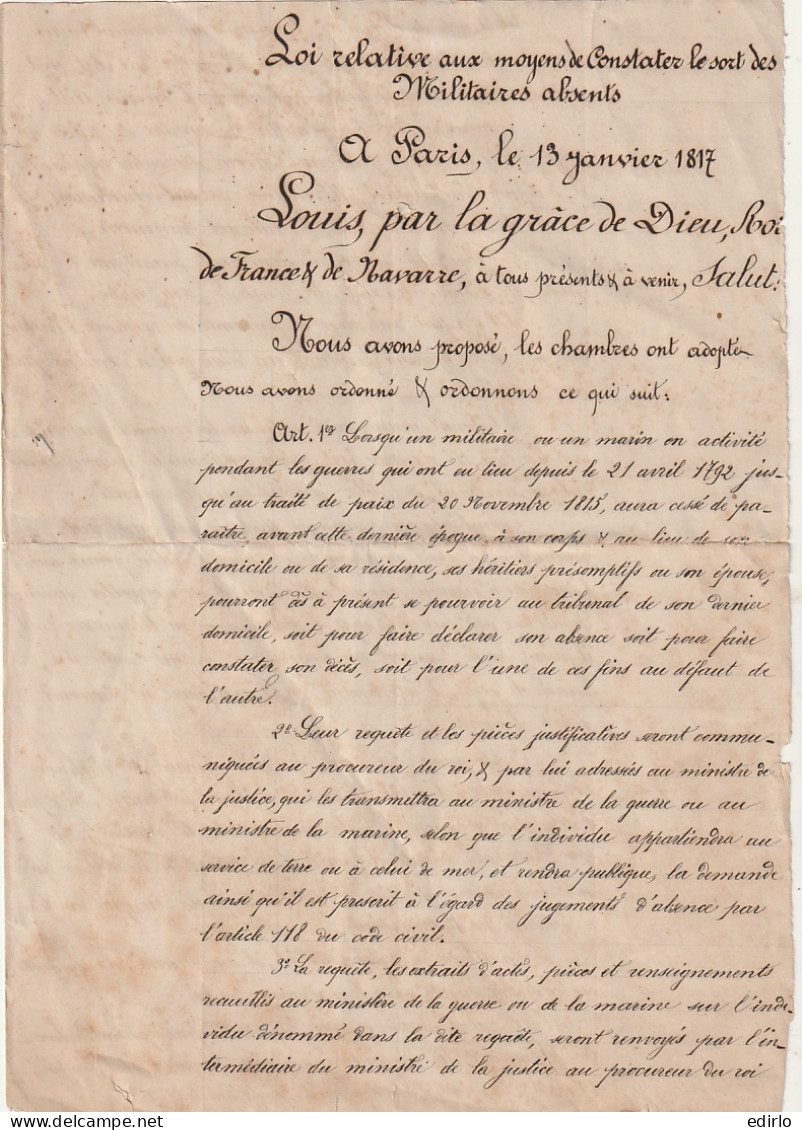 Loi relative aux moyens de Constater le sort des
Militaires absents
A Paris, le 13 Janvier 1817
Louis, par la grâce de Dieu, Roi
de France & de Navarre, à tous présents & à venir, Salut:
Nous avons proposé, les chambres ont adopté
Nous avons ordonné & ordonnons ce qui suit:
Art. 1er Lorsqu'un militaire ou un marin en activité
pendant les guerres qui ont eu lieu depuis le 21 avril 1792 jus-
qu'au traité de paix du 20 Novembre 1815, aura cessé de pa-
raître, avant cette dernière époque à son corps & au lieu de son
domicile ou de sa résidence, ses héritiers présomptifs ou son épouse,
pourront dès à présent se pourvoir au tribunal de son dernier
domicile, soit pour faire déclarer son absence soit pour faire
constater son décès, soit pour l'une de ces fins au défaut de
l'autre.
2e Leur requête et les pièces justificatives seront commu-
niquées au procureur du roi, & par lui adressés au ministre de
la justice, qui les transmettra au ministre de la guerre ou au
ministre de la marine, selon que l'individu appartiendra au
service de terre ou à celui de mer, et rendra publique, la demande
ainsi qu'il est prescrit à l'égard des jugements d'absence par
l'article 118 du code civil.
3e La requête, les extraits d'actes, pièces et renseignements
recueillis au ministère de la guerre ou de la marine sur l'indi-
vidu dénommé dans la dite requête, seront renvoyés par l'in-
termédiaire du ministre de la justice au procureur du roi
www.delcampe.net
edirlo